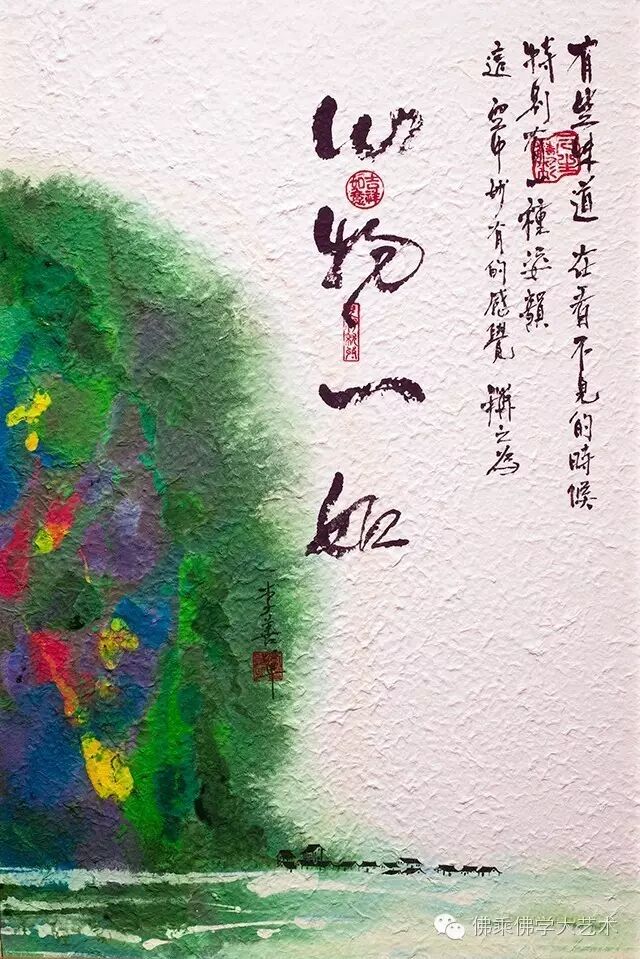 有些味道 在看不見的時候
特別有一種姿韻
這 空中妙有的感覺 稱之為
心物一如
吉祥如意
李善單
佛乘佛学大艺术